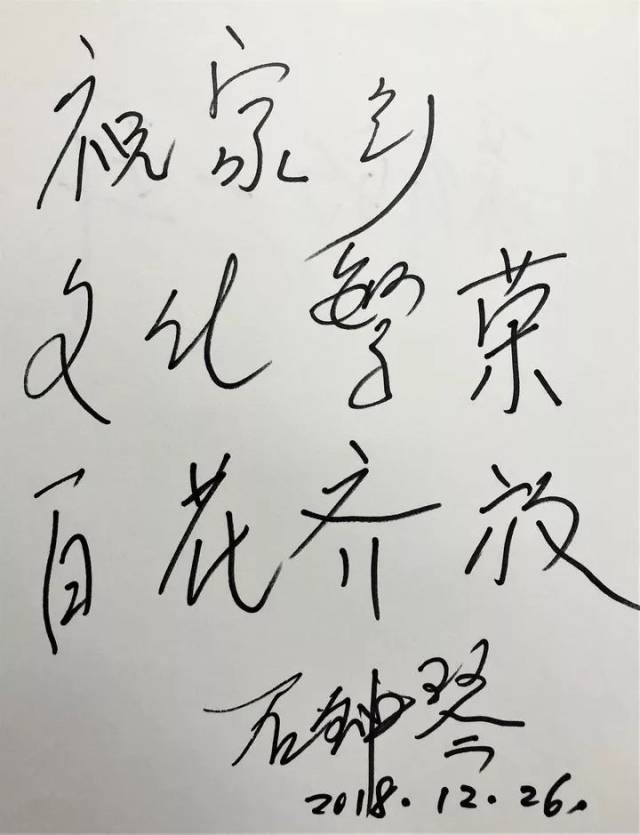 祝家乡
文化繁荣
百花齐放
石钟琴
2018.12.26.